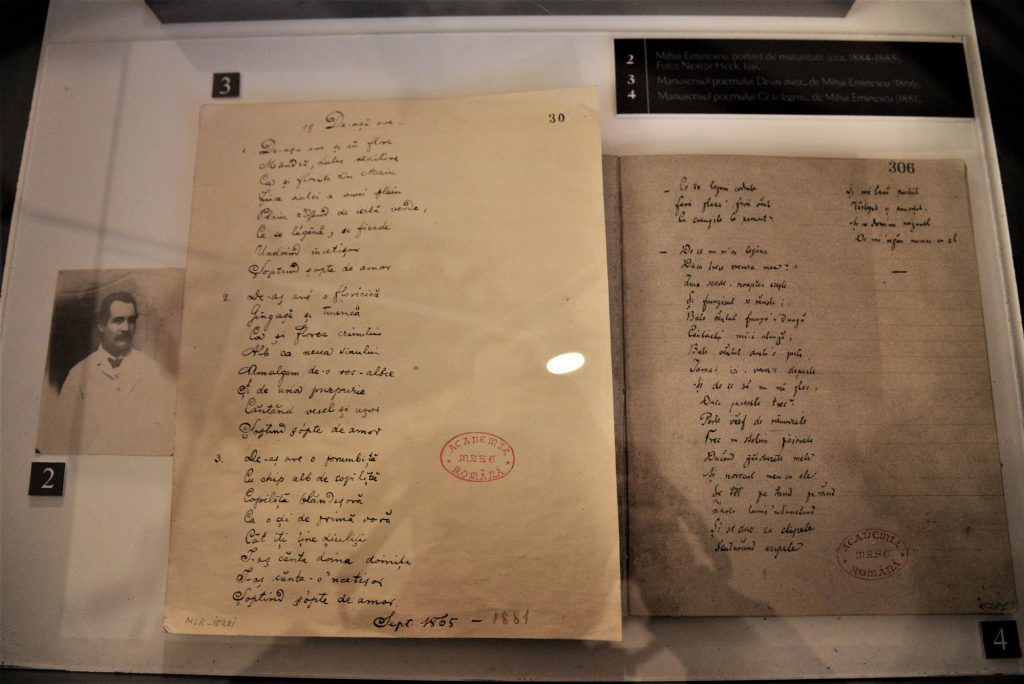 2 Mihai Eminescu, portret de maturitate (cca. 1884-1885),
Foto: Nestor Heck, Iaşi
3 Manuscrisul poemului De-aş avea... de Mihai Eminescu (1866);
4 Manuscrisul poemului Ce te legeni... de Mihai Eminescu (1881);
3
30
19 De-aşŭ ave...
1. De-aşu ave şi eŭ flore
Mândră, dulce
Ca şi florile din Maiu
unui plaiu
Plaiu rîdînd de erbă verde,
Ce se légănă, se pierde
Undoind încetişor
Şoptind şopte de amor
2. De-aş avé o floricică
Gingaşă şi tinerică
Ca şi florea crinului
Alb ca neaua sinului
Amalgam de-o ros-albie
Şi de una purpurie
Cântând vesel şi uşor
Şoptind şópte de amor
3. De-aş ave o porumbiţă
Cu chip alb de copiliţă
Copiliţă blândişoră
Ca o di de primă-voră
Cât ţi ţine diuliţi
I-aş cânta doina doiniţa
I-aş cânta-o 'ncetişor
Şoptind şópte de amor.
Sept 1865 – 1881
MLR-15201
ACADEMIA
MSSE
ROMÂNĂ
2
306
– Ce te legeni codrule
Fără ploae, fără vânt
Cu crengile la pament?
– De ce nu m'aş legăna
Daca trece vremea mea?
Ziua scade, noaptea creşte
Şi frunzişul
Bate vântul frunza 'n dungă
Cântăreţii mi-i alungă;
Bate vântul dintr'o parte
Iarna-i ici, vara-i departe
Şi de ce să nu mă plec,
Daca paserile trec?
Peste vârf de rămurele
Trec în stoluri
Ducând gândurile mele
Şi norocul meu cu ele
Se tot pe rând, pe rând
Zarea lumii 'ntunecând
Şi se duc ca clipele
Scuturând aripele
Şi mă lasă pustiit
Vestejit şi amorţit
Şi cu dorul
De mă 'ngân numai cu el
ACADEMIA
MSSE
ROMÂNĂ
4